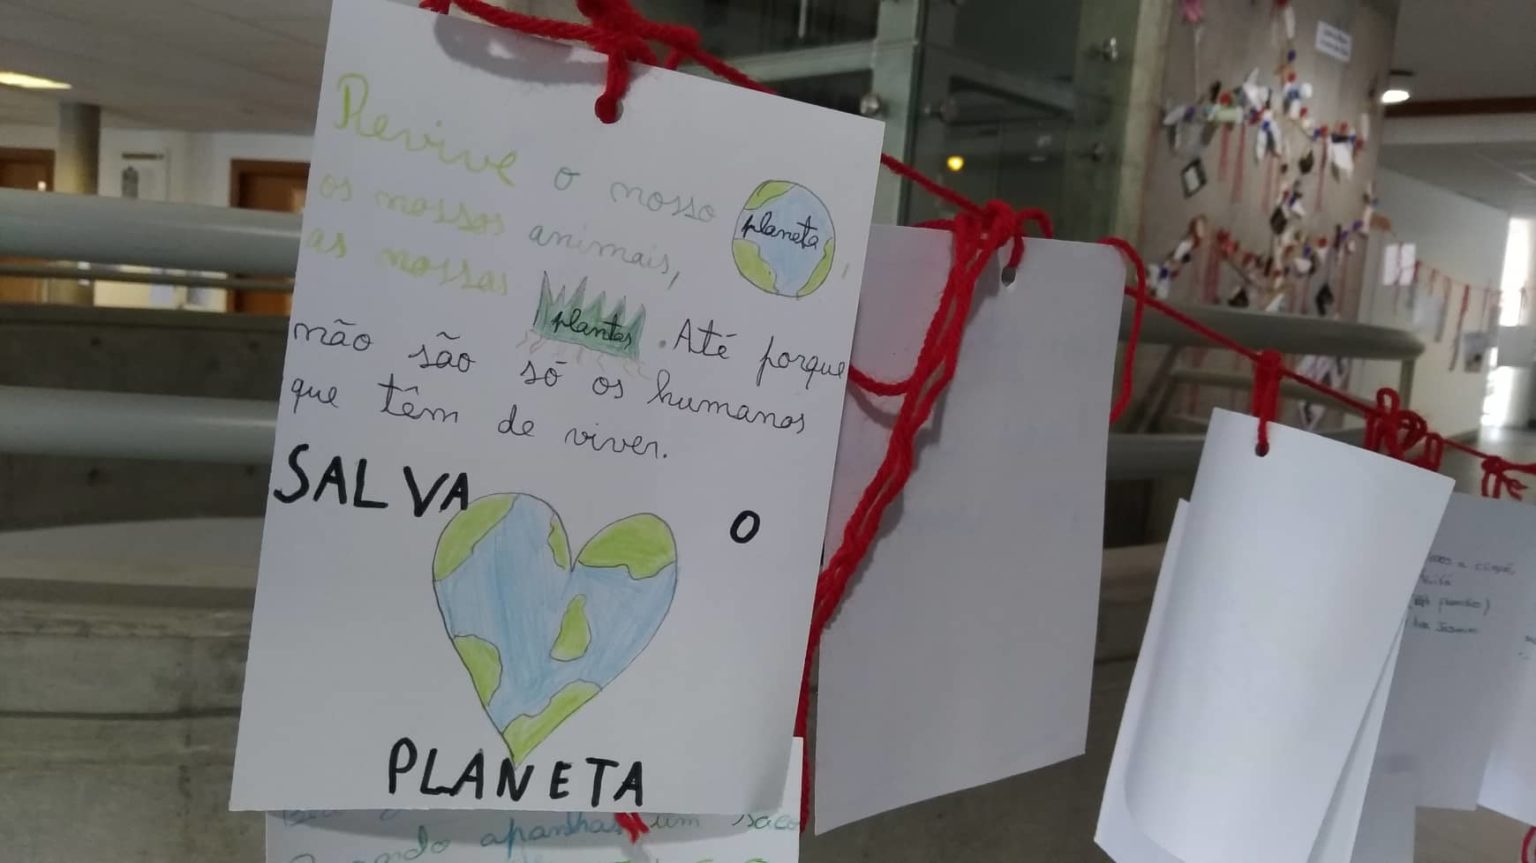 Revive o nosso planeta,
os nossos animais,
as nossas plantas. Até porque
não são só os humanos
que têm de viver.
SALVA O
PLANETA
apanhas um saco